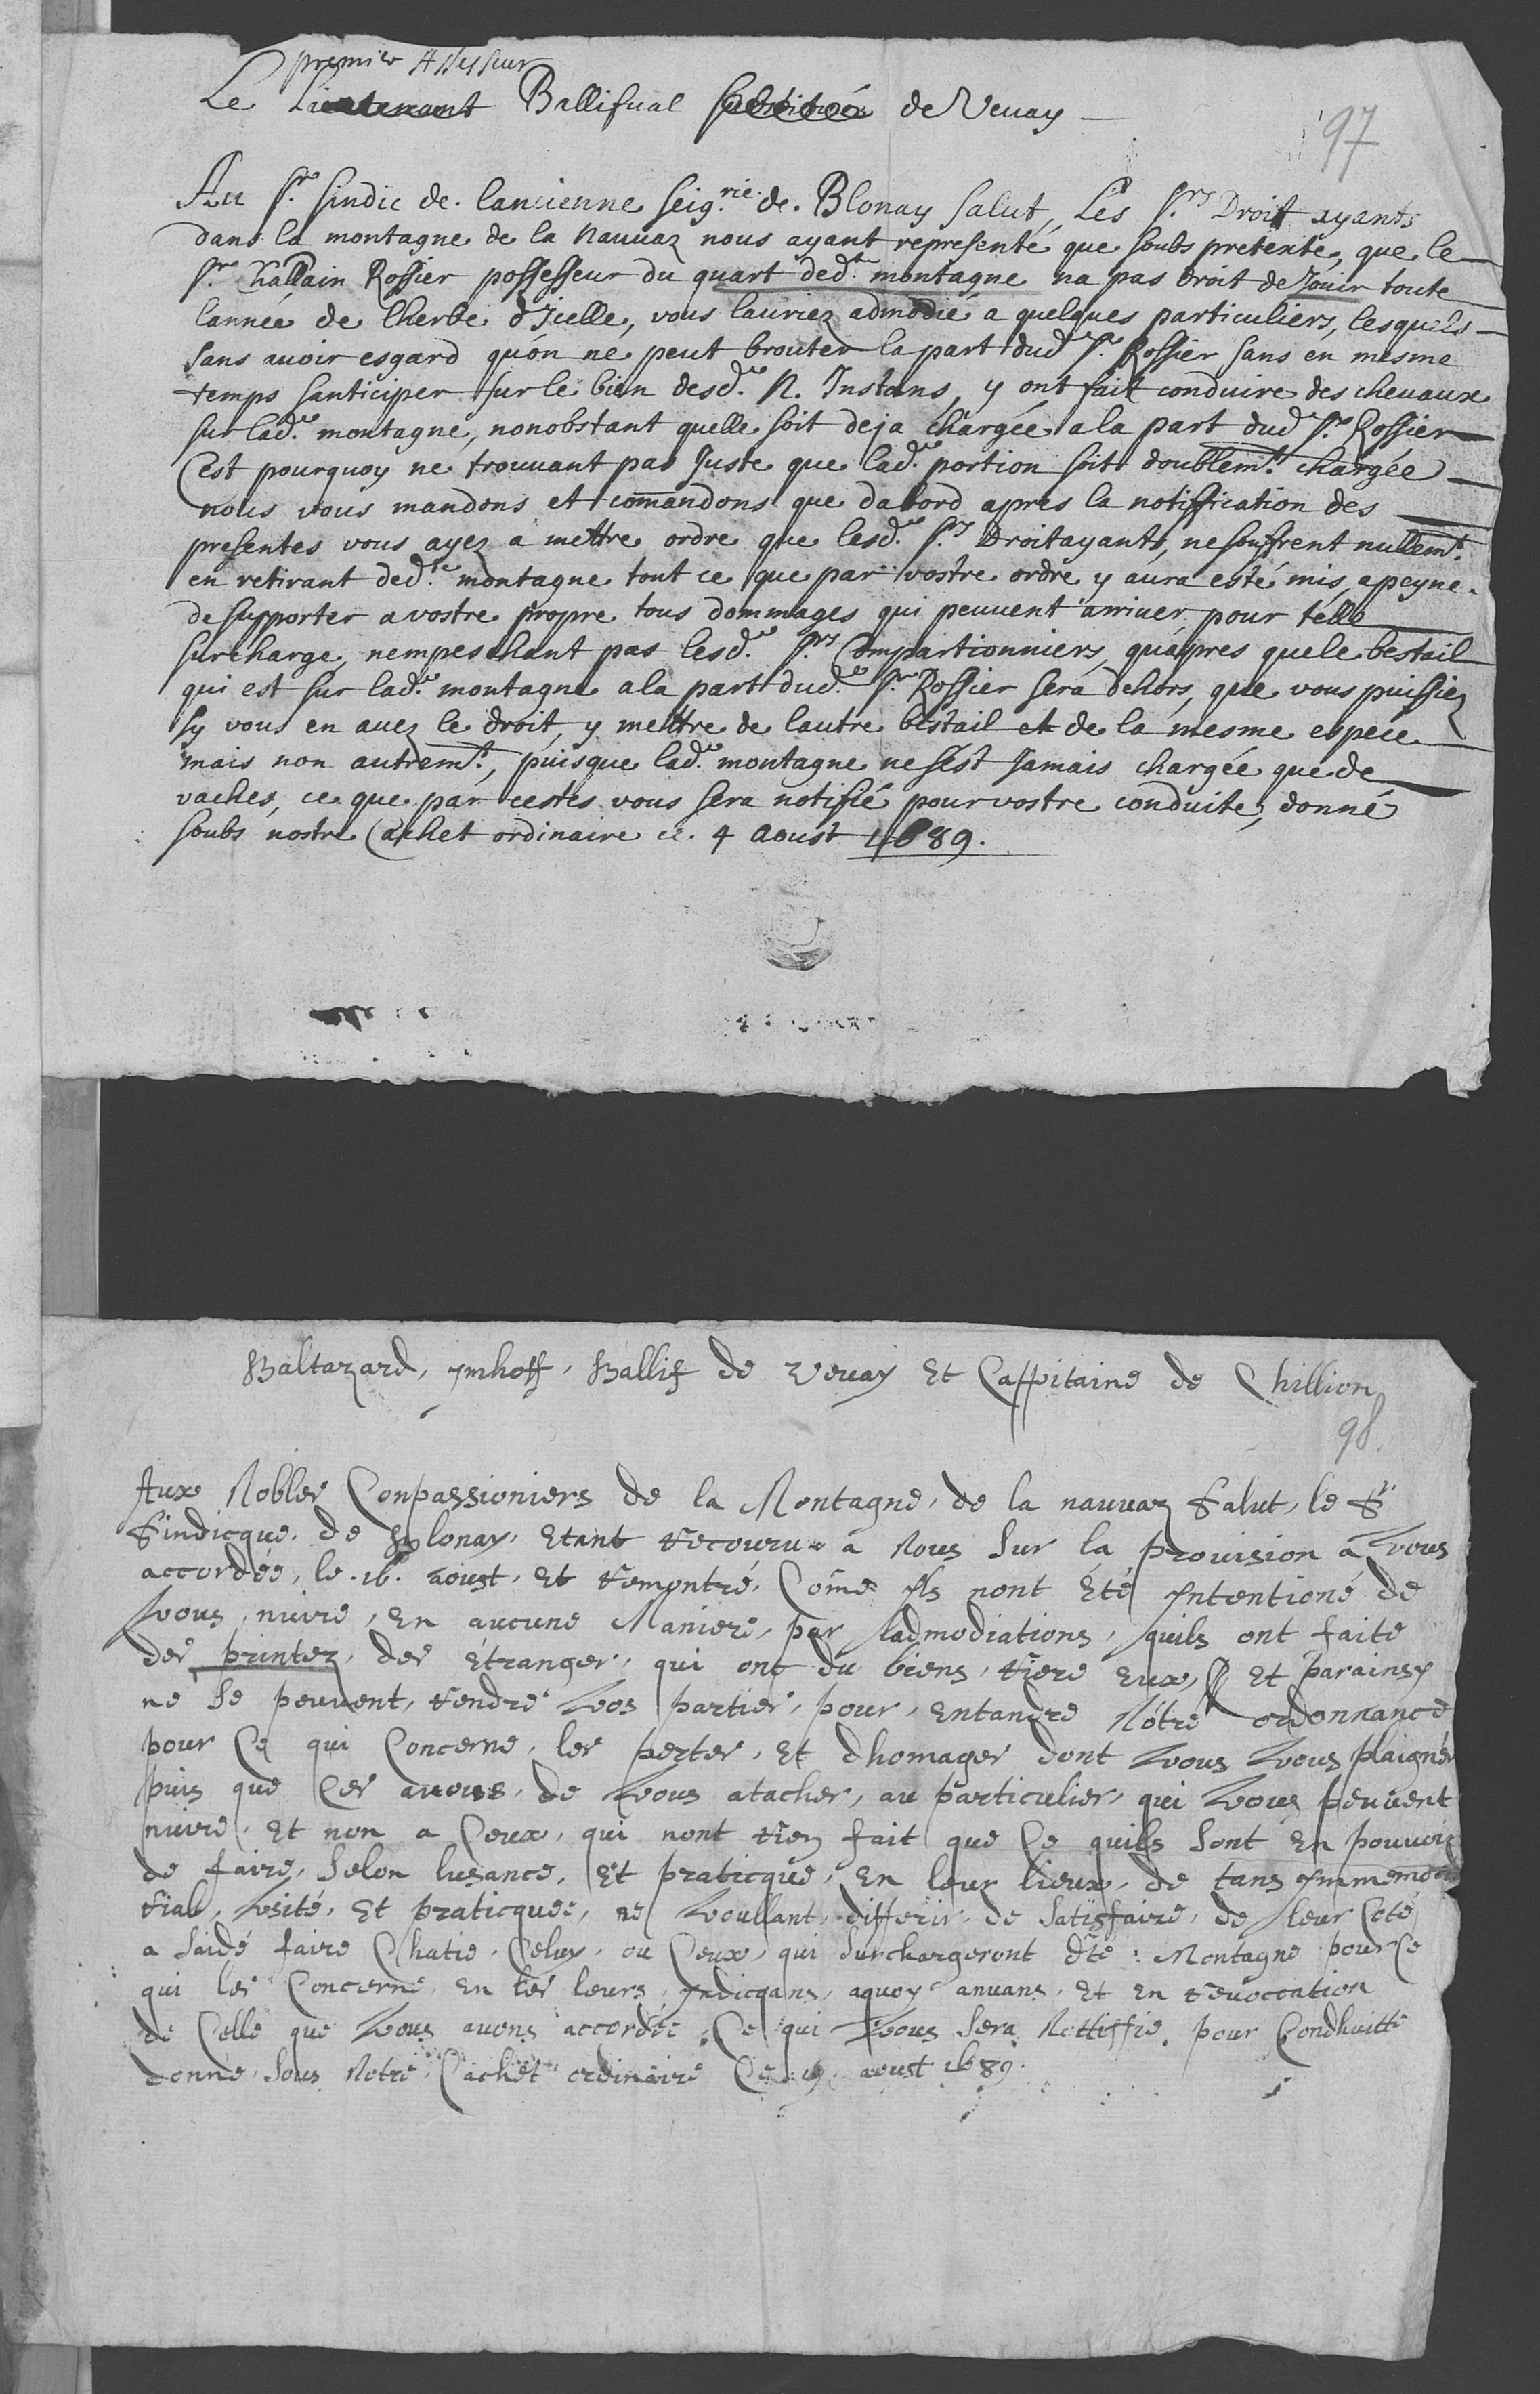 premier Assesseur
Le Lieutenant Ballifual substitué de Veuay
97
Au Sr. Sindic de lancienne Seig.rie de Blonay Salut, Les S.rs Droit ayants
dans la montagne de la Nauuaz nous ayant representé que soubs pretexte, que le
Sr. Chastelain Rossier possesseur du quart ded.te montagne na pas droit de Jouir toute
lannée de lherbe dJcelle, vous lauriez admodié a quelques particuliers, lesquels
sans auoir esgard quon ne peut brouter la part dud. Sr. Rossier sans en mesme
temps santiciper sur le bien desd. N. Instans, y ont fait conduire des cheuaux
sur lad.e montagne, nonobstant quelle soit deja chargée a la part dud. Sr. Rossier
Cest pourquoy ne trouuant pas Juste que lad.e portion soit doublem.t chargée
nous vous mandons et comandons que dabord apres la notiffication des
presentes vous ayez a mettre ordre que lesd. S.rs Droitayants, ne souffrent nullem.t
en retirant ded.te montagne tout ce que par vostre ordre y aura esté mis, a peyne
de supporter a vostre propre tous dommages qui peuuent arriuer pour telle
surcharge, nempeschant pas lesd. S.rs Compartionniers, quapres que le bestail
qui est sur lad.e montagne a la part dud. Sr. Rossier sera dehors, que vous puissiez
sy vous en auez le droit, y mettre de lautre bestail et de la mesme espece
mais non autrem.t, puisque lad.e montagne ne sest Jamais chargée que de
vaches, ce que par cestes vous sera notifié pour vostre conduite, donné
soubs nostre Cachet ordinaire ce 4 Aoust 1689.
Baltazard, ymhoff, Ballif de Veuay Et Cappitaine de Chillion
98
Aux Nobles Conpassioniers de la Montagne, de la nauuaz Salut, le Sr
Sindicque, de Blonay, Etant recouru a Nous Sur la prouision a Vous
accordée, le 16. aoust, Et remontré, Come yls nont Été yntentioné de
Vous, nuire, En aucune Maniere, par ladmodiations, quils ont faite
des printez, des Étranger, qui ont du biens, riere Eux, Et parainsy
ne Se peuuent, rendre Vos parties, pour, Entandre Nôtre ordonnance
pour Ce qui Concerne, les pertes, Et dhomages dont Vous Vous plaignés
puis que Ces auous, de Vous atacher, au particulier, qui Vous peuuent
nuire, Et non a Ceux, qui nont rien fait que Ce quils Sont En pouuoir
de faire, Selon lusance, Et praticque, En leur lieux, de tans ymmemo
rial, Vsité, Et praticquée, ne Voullant, differir, de Satisfaire, de leur Coté
a Saide faire Chatie, Celuy, ou Ceux, qui Surchargeront dte: Montagne pour Ce
qui les Concerne, En les leurs, yndicqans, aquoy anuans, Et En reuoccation
de Celle que Vous auons accordée, Ce qui Vous Sera Nottiffie, pour Condhuitte
donné, Sous Notre, Cachet ordinaire Ce 19. aoust 1689.